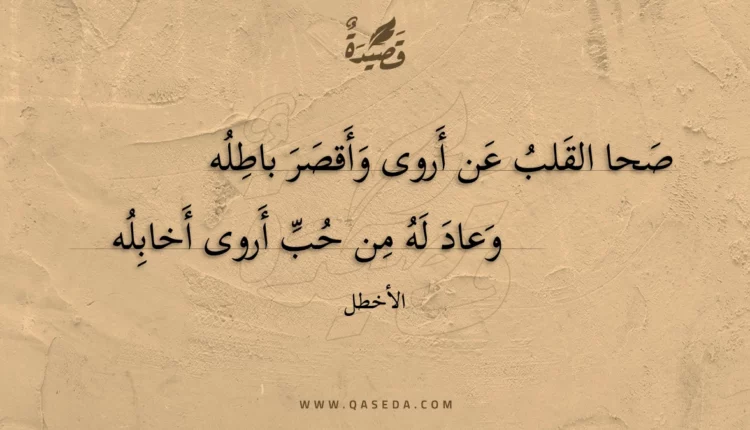 قَصِيدَةٌ
صَحا القَلبُ عَن أَروى وَأَقصَرَ باطِلُه
وَعادَ لَهُ مِن حُبِّ أَروى أَخابِلُه
الأخطل
WWW.QASEDA.COM